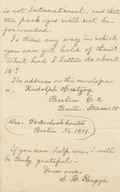 is not International, and that
this package will not be
forwarded.
Is there any way in which
you can get hold of them?
What had I better do about
it?
The address on the envelope
is, Rudolph Hertzog,
Berlin C. 2
Breite Strasse 15
Berlin No. 1914.
If you can help me, I will
be truly grateful—
Yours ever,